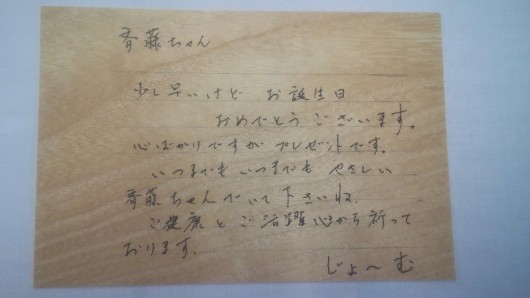 斉藤ちゃん
少し早いけど お誕生日
おめでとう ございます。
心ばかりですが プレゼントです。
いつまでも いつまでも やさしい
斉藤ちゃんでいて下さいね.
ご健康と ご活躍心から祈って
おります.
じょ〜む